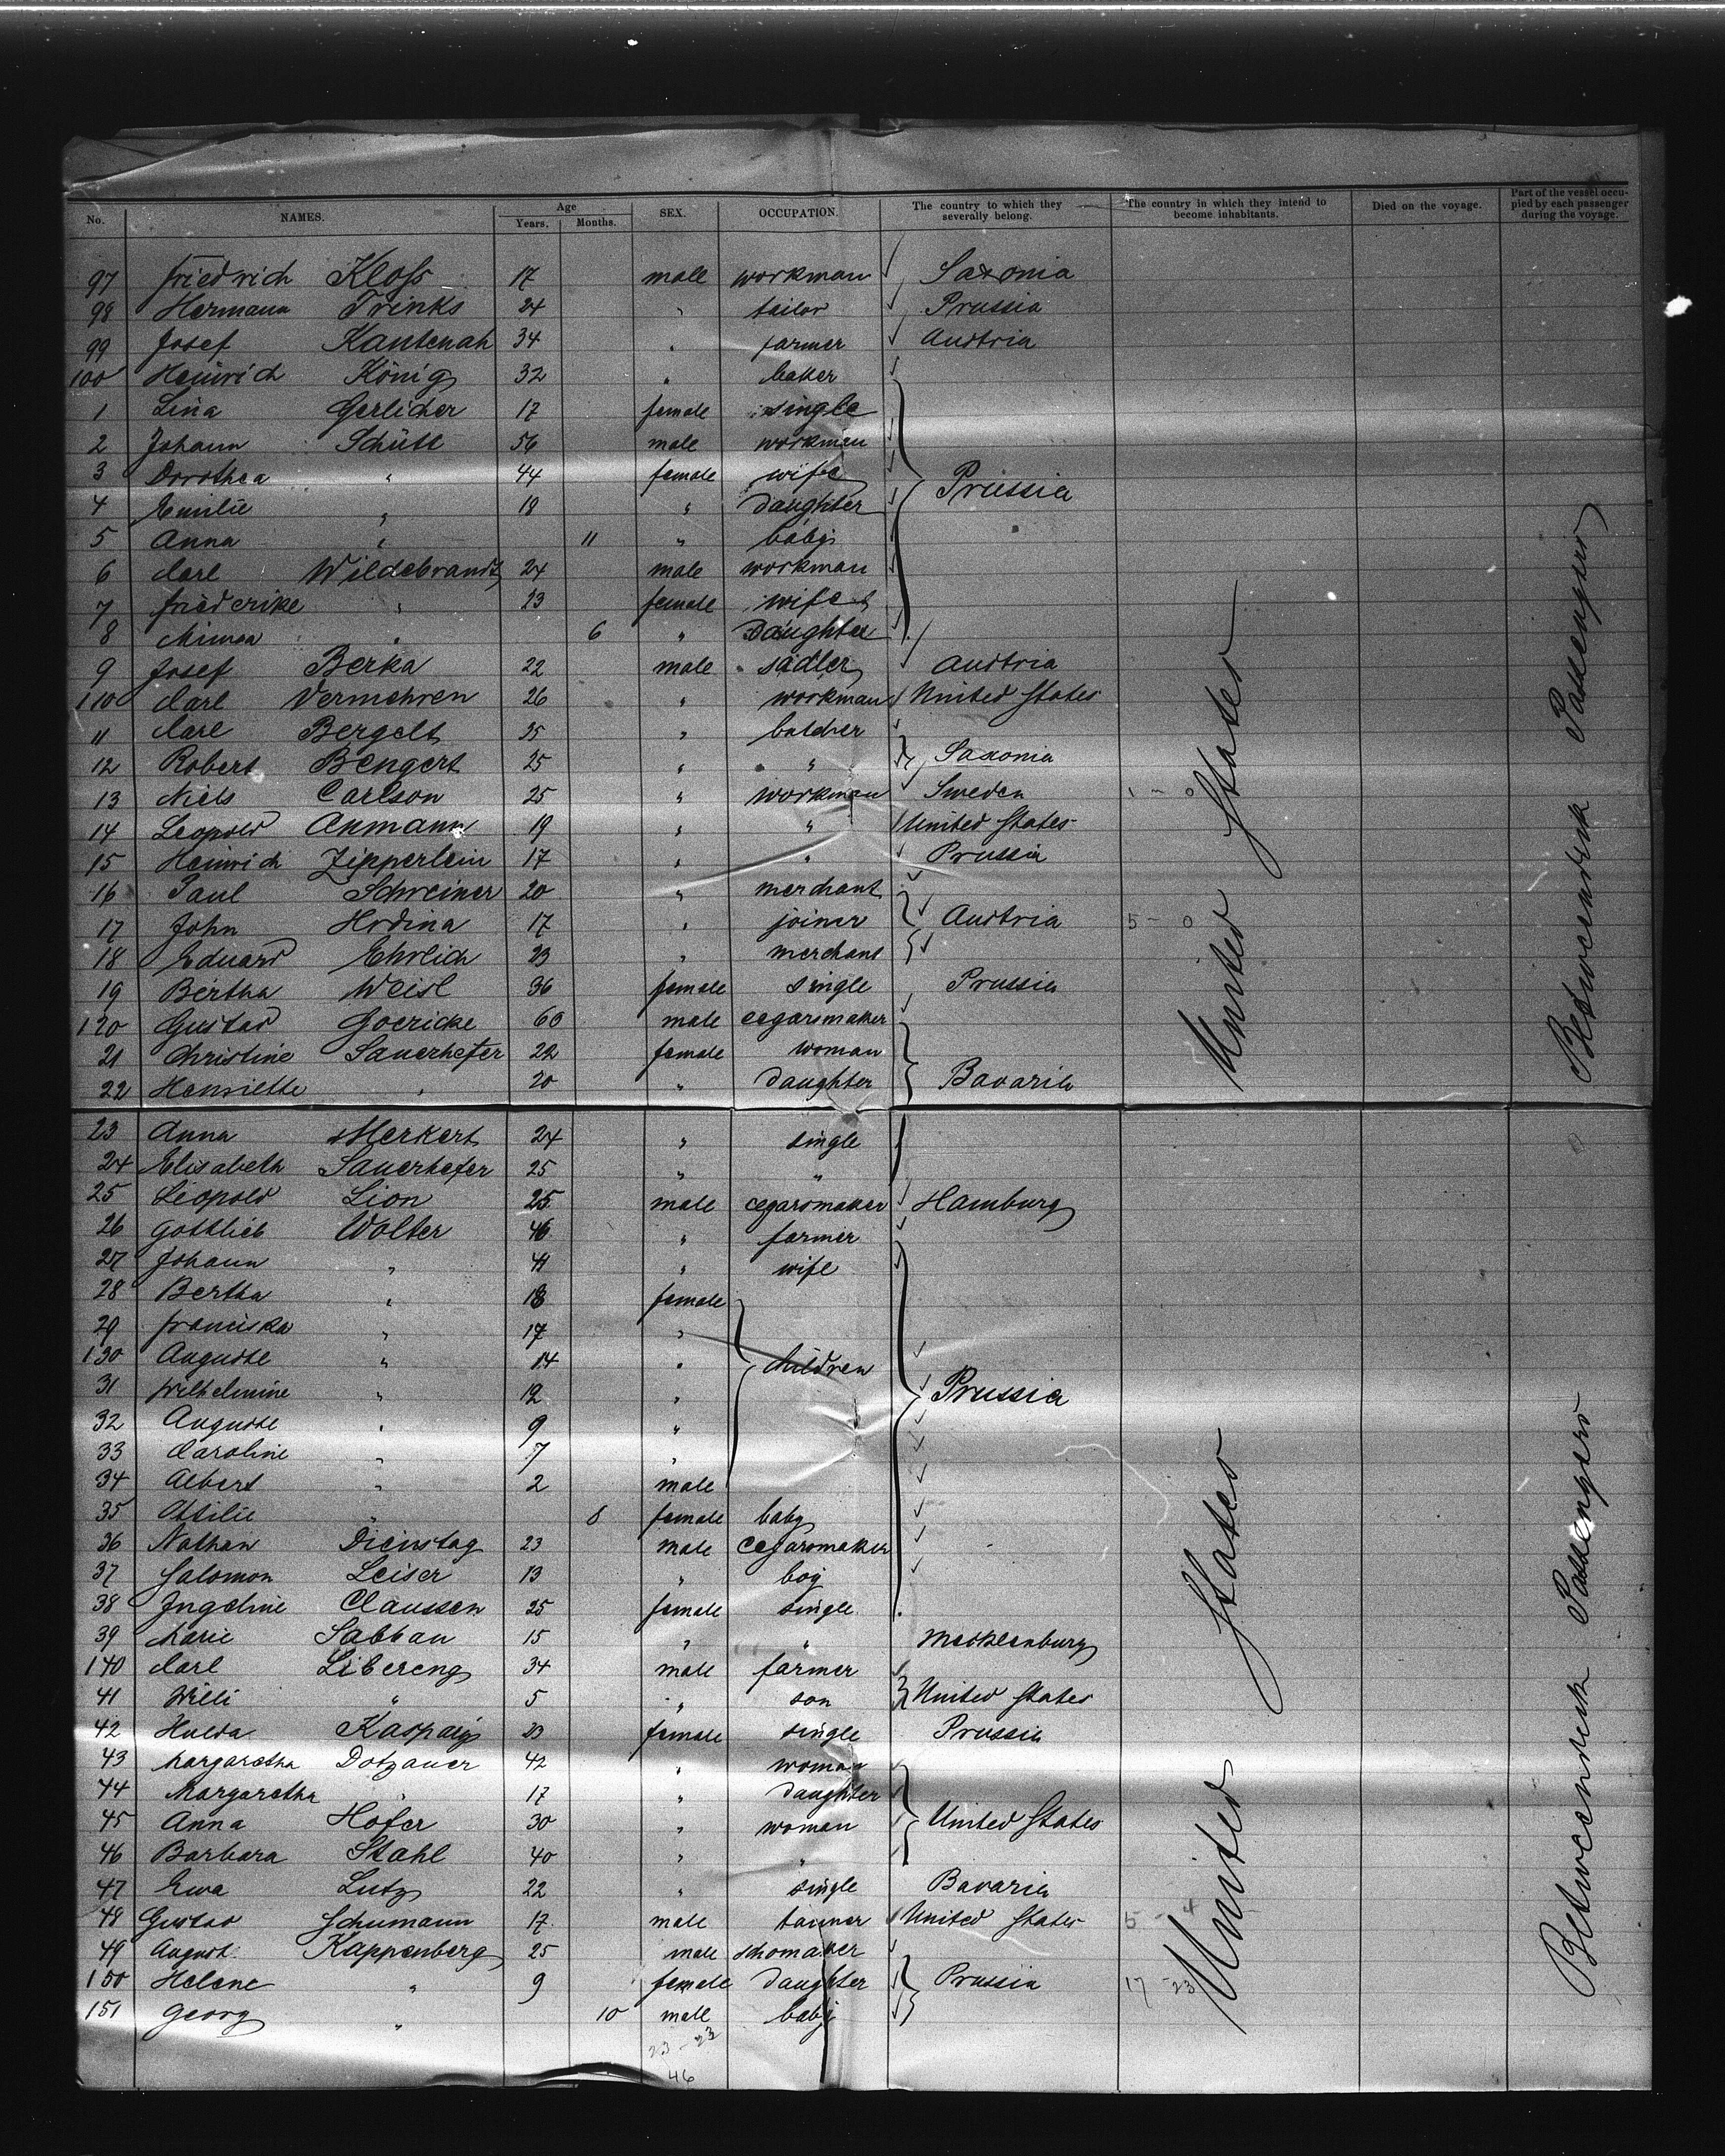 No. NAMES. Age Years. Months. SEX. OCCUPATION. The country to which they severally belong. The country in which they intend to become inhabitants. Died on the voyage. Part of the vessel occupied by each passenger during the voyage.
97 Friedrich Kloss 17 male workman Saxonia
98 Hermann Trinks 24 " tailor Prussia
99 Josef Kantenah 34 " farmer Austria
100 Heinrich König 32 " baker
1 Lina Gerlicher 17 female single
2 Johann Schütt 56 male workman
3 Dorothea " 44 female wife Prussia
4 Emilie " 18 " daughter
5 Anna " 11 " baby
6 Carl Wildebrandt 24 male workman
7 Friederike " 23 female wife
8 Minna " 6 " Daughter
9 Josef Berka 22 male sadler Austria
110 Carl Vermehren 26 " workman United States
11 Carl Bergelt 35 " butcher
12 Robert Bengert 25 " " Saxonia
13 Niels Carlson 25 " workman Sweden 1 - 0
14 Leopold Anmann 19 " " United States
15 Heinrich Zipperlein 17 " " Prussia
16 Paul Schreiner 20 " merchant
17 John Hrdina 17 " joiner Austria 5 - 0
18 Eduard Ehrlich 23 " merchant
19 Bertha Weisl 36 female single Prussia
120 Gustav Goericke 60 male cegarsmaker
21 Christine Sauerhefer 22 female woman
22 Henriette " 20 " daughter Bavaria
23 Anna Merkert 24 " single
24 Elisabeth Sauerhefer 25 " "
25 Leopold Lion 25 male cegarsmaker Hamburg
26 Gottlieb Wolter 46 " farmer
27 Johann " 41 " wife
28 Bertha " 18 female
29 Franciska " 17 "
130 Auguste " 14 " children
31 Wilhelmine " 12 " Prussia
32 Auguste " 9 "
33 Caroline " 7 "
34 Albert " 2 male
35 Ottilie " 8 female baby
36 Nathan Dienstag 23 male cegarsmaker
37 Salomon Leiser 13 " boy
38 Ingeline Claussen 25 female single
39 Marie Sabban 15 " " Mecklenburg
140 Carl Libereng 34 male farmer
41 Willi " 5 " son United States
42 Hulda Kaspaig 23 female single Prussia
43 Margaretha Dotzauer 42 " woman
44 Margaretha " 17 " daughter
45 Anna Hofer 30 " woman United States
46 Barbara Stahl 40 " "
47 Ewa Lutz 22 " single Bavaria
48 Gustav Schumann 17 male tanner United States 5 - 4
49 August Kappenberg 25 male schomaker
150 Helene " 9 female daughter Prussia 17 - 23
151 Georg " 10 male baby
23 - 23
46
United States
United States
Betweendeck Passengers
Betweendeck Passengers